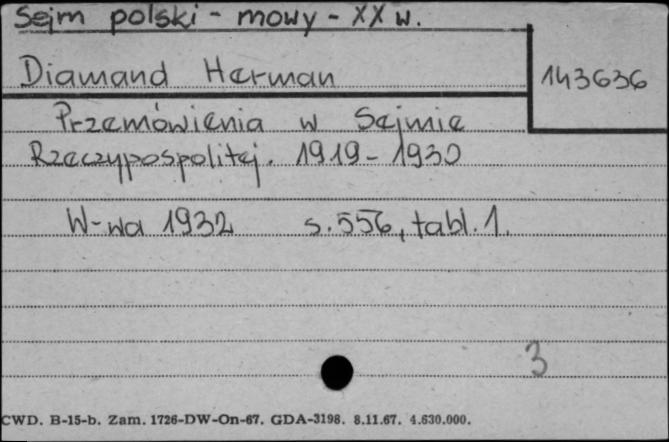 Sejm polski - mowy - XX w.
Diamand Herman
143636
Przemówienia w Sejmie
Rzeczypospolitej. 1919 - 1930
W-wa 1932 s. 556, tabl. 1.
3
CWD. B-15-b. Zam. 1726-DW-On-67. GDA-3198. 8.11.67. 4.630.000.